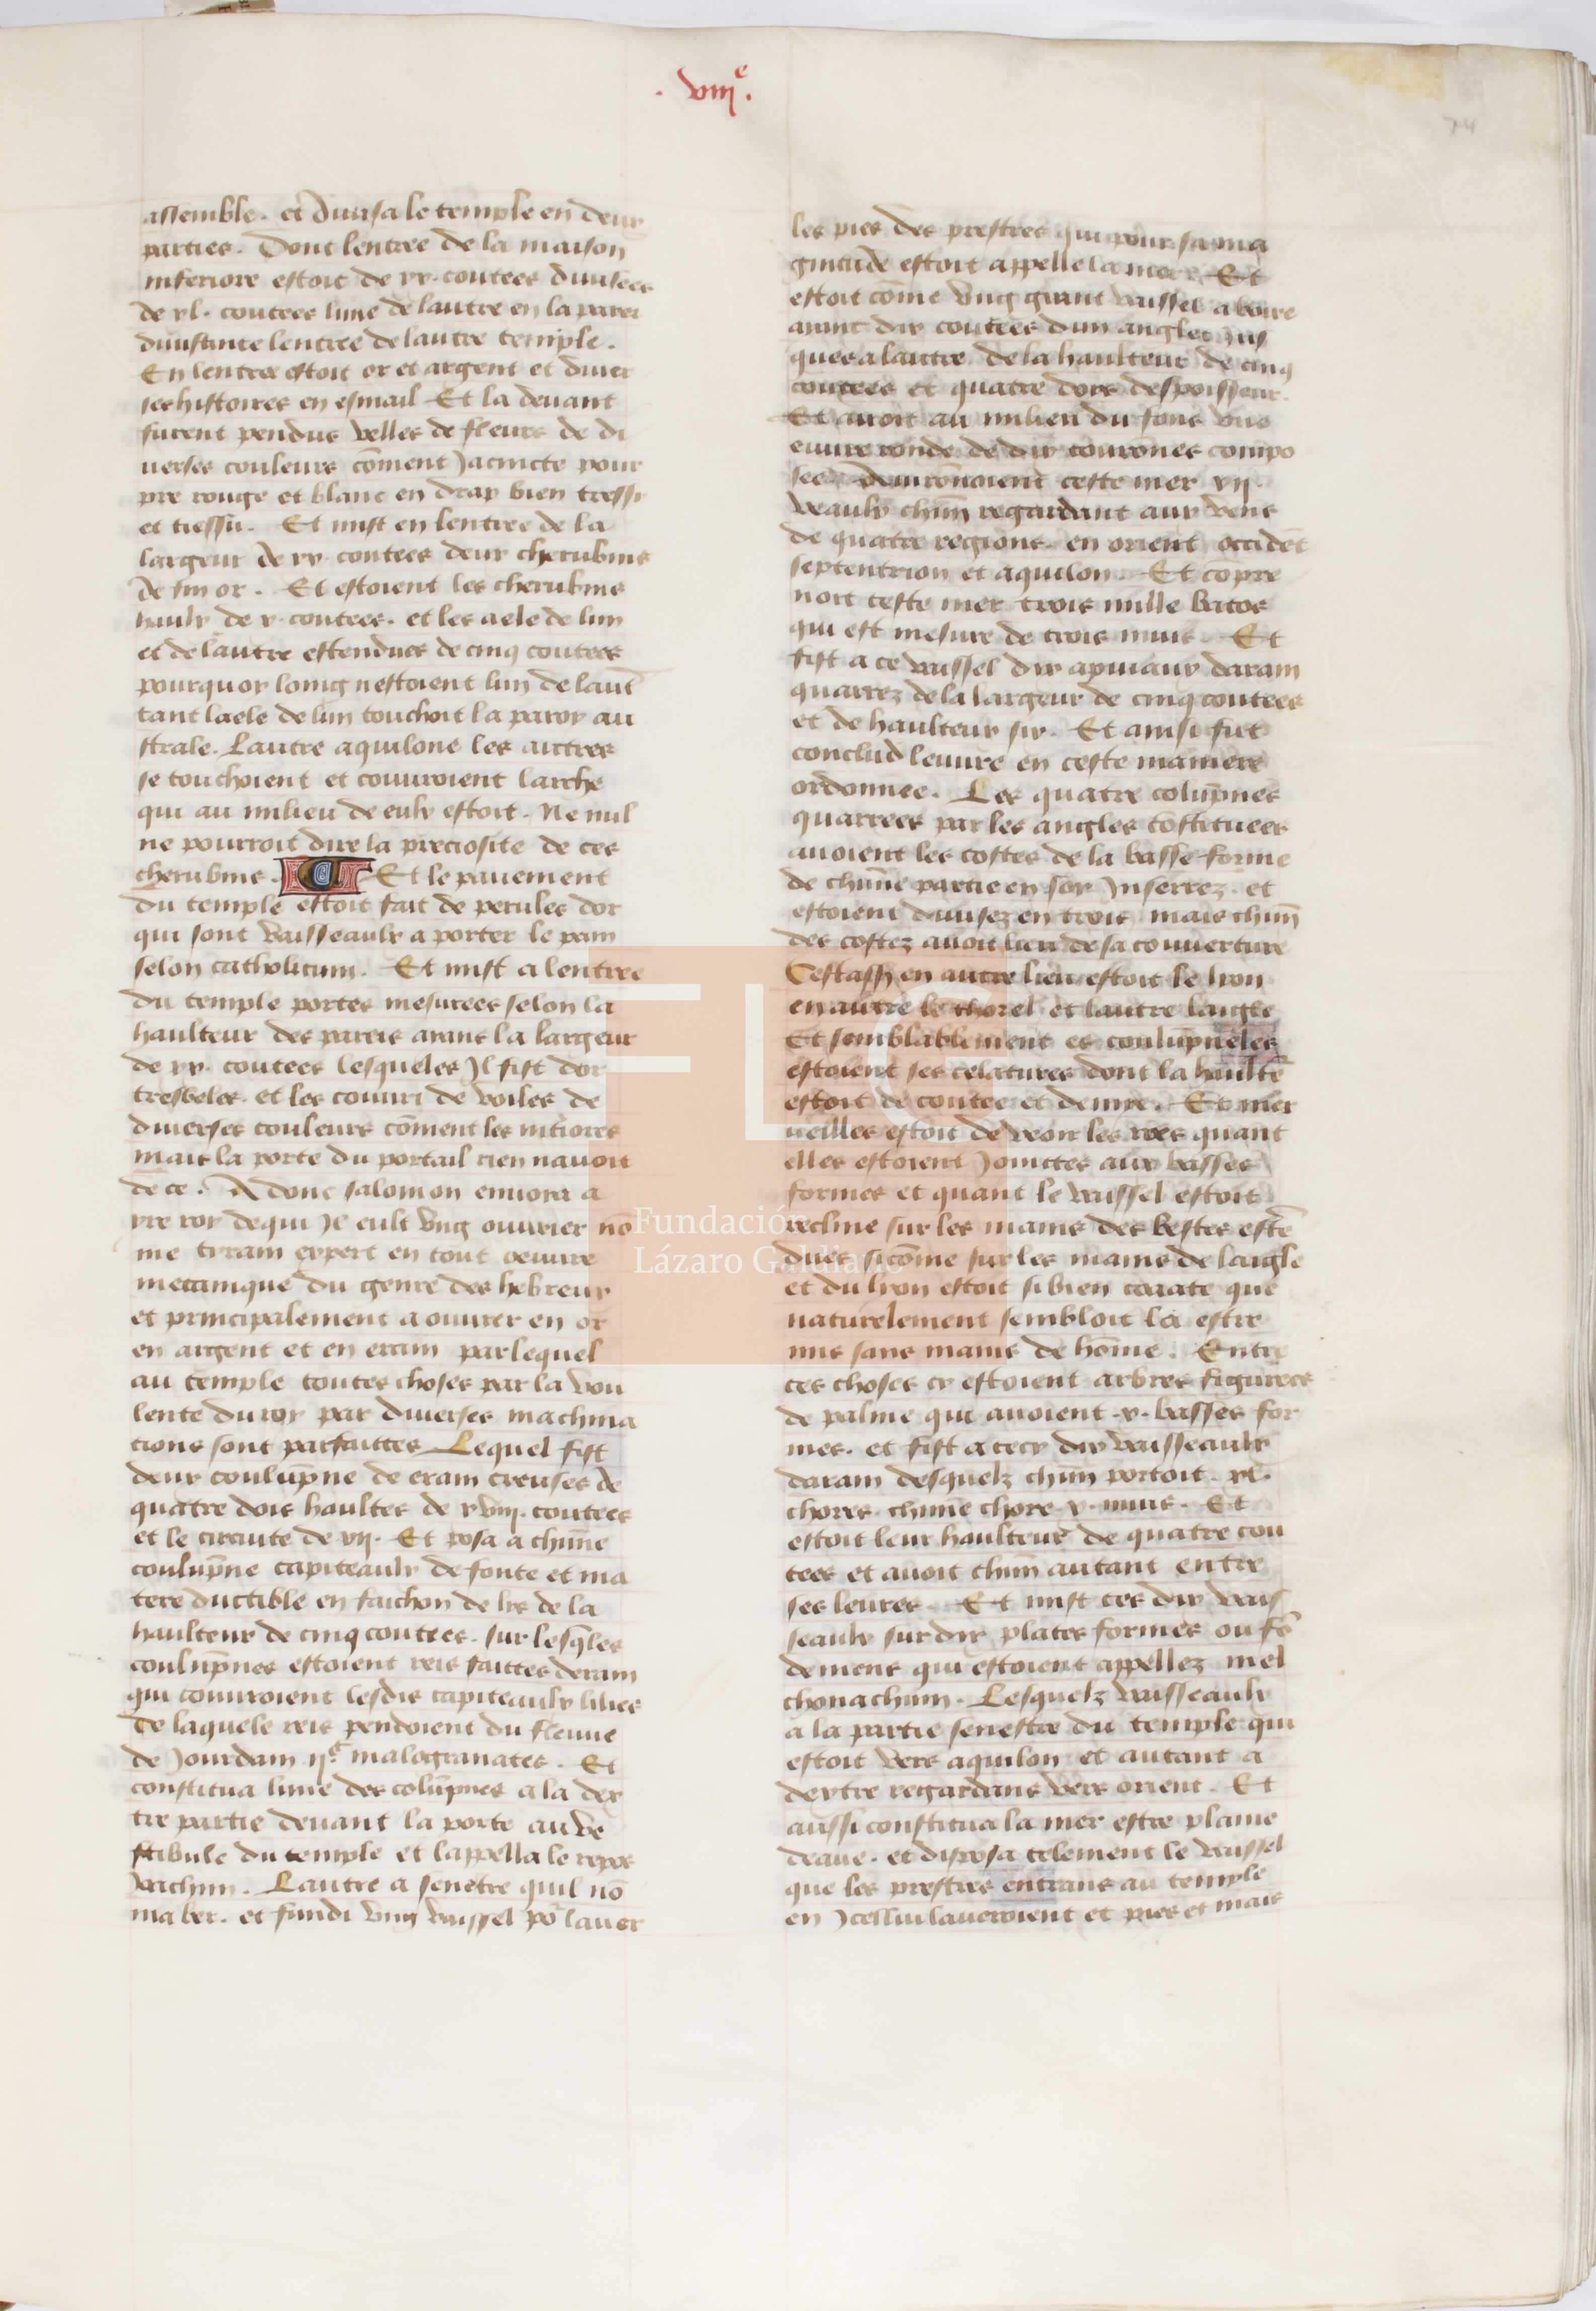 . viii e.
74
assemble. et diuisa le temple en deux
parties. Dont lentree de la maison
inferiore estoit de xx. coutees diuisees
de xl. coutees lune de lautre en la parei
diuistince lentree de lautre temple.
En lentree estoit or et argent et diuer
ses histoires en esmail Et la deuant
furent pendus velles de fleurs de di
uerses couleurs cōment Jacincte pour
pre rouge et blanc en drap bien tressi
et tiessu. Et mist en lentree de la
largeur de xx coutees deux cherubins
de fin or. Et estoient les cherubins
haulx de x. coutees. et les aele de lun
et de lautre estendues de cinq coutees
pourquoy loing nestoient lun de laut
tant laele de lun touchoit la paroy au
strale. Lautre aquilone les autres
se touchoient et couuroient larche
qui au milieu de eulx estoit. Ne nul
ne pourroit dire la preciosite de ces
cherubins. Et le pauement
du temple estoit fait de perules dor
qui sont vaisseaulx a porter le pain
selon catholicum. Et mist a lentree
du temple portes mesurees selon la
haulteur des pareis aians la largeur
de xx. coutees lesqueles Jl fist dor
tresbeles. et les couuri de voiles de
diuerses couleurs cōment les interiores
mais la porte du portail rien nauoit
de ce. Adonc salomon enuoia a
yre roy de qui Jl eult vng ouurier nō
me tyram expert en tout oeuure
mecanique du genre des hebreux
et principalement a ouurer en or
en argent et en eram par lequel
au temple toutes choses par la vou
lente du roy par diuerses machina
tions sont parfaittes Lequel fist
deux coulūpne de eram creuses de
quatre dois haultes de xviij. coutees
et le circuite de xij. Et posa a chūne
coulūpne capiteaulx de fonte et ma
tere ductible en faichon de lis de la
haulteur de cinq coutees. sur lesqles
coulūpnes estoient reis faittes deram
qui couuroient lesdis capiteaulx lilies
de laquele reis pendoient du fleuue
de Jourdam ijc malogranates. Et
constitua lune des colūpnes a la dex
tre partie deuant la porte au ve
stibule du temple et lappella le repos
Jachin. Lautre a senetre quil nō
ma ber. et fundi vng vaissel po lauer
les pies des prestres qui pour sa ma
gnitude estoit appelle la mere Et
estoit cōme vng grant vaissel a boire
aiant dix coutees dun anglet jus
ques a lautre de la haulteur de cinq
coutees et quatre dois despoisseur.
Et auoit au milieu du fons vne
euure ronde de dix couronnes compo
sees enuironnoient ceste mer xij.
veaulx chūn regardant aux vens
de quatre regions. en orient occidēt
septentrion et aquilon. Et cōpre
noit ceste mer trois mille batos
qui est mesure de trois muis. Et
fist a ce vaissel dix apuiaux daram
quarrez de la largeur de cinq coutees
et de haulteur six. Et ainsi fut
conclud leuure en ceste maniere
ordonnee. Les quatre colūpnes
quarrees par les angles cōstituees
auoient les costes de la basse forme
de chūne partie en soy Jnserrez. et
estoient diuisez en trois mais chūn
des costez auoit lieu de sa couuerture
Cestass en autre lieu estoit le lyon
en autre le thorel et lautre laigle
Et semblablement es coulūpneles
estoient ses celatures dont la haultē
estoit de coutee et demye. Et mer
ueilles estoit de veoir les roes quant
elles estoient Joinctes aux basses
formes et quant le vaissel estoit
recline sur les mains des bestes estē
dues sicōme sur les mains de laigle
et du lyon estoit si bien coaate que
naturelement sembloit la estre
mis sans mains de hōme. Entre
ces choses cy estoient arbres figurees
de palme qui auoient .x. basses for
mes. et fist a cecy dix vaisseaulx
daram desquelz chūn portoit. xl.
chores. chūne chore .x. muis. Et
estoit leur haulteur de quatre cou
tees et auoit chūn autant entre
ses leures. Et mist ces dix vais
seaulx sur dix plates formes ou fō
demens qui estoient appellez mel
chonachum. Lesquelz vaisseaulx
a la partie senestre du temple qui
estoit vers aquilon et autant a
dextre regardans vers orient. Et
aussi constitua la mer estre plaine
deaue. et disposa telement le vaissel
que les prestres entrans au temple
en Jcellui laueroient et pies et mais
Fundación
Lázaro Galdiano